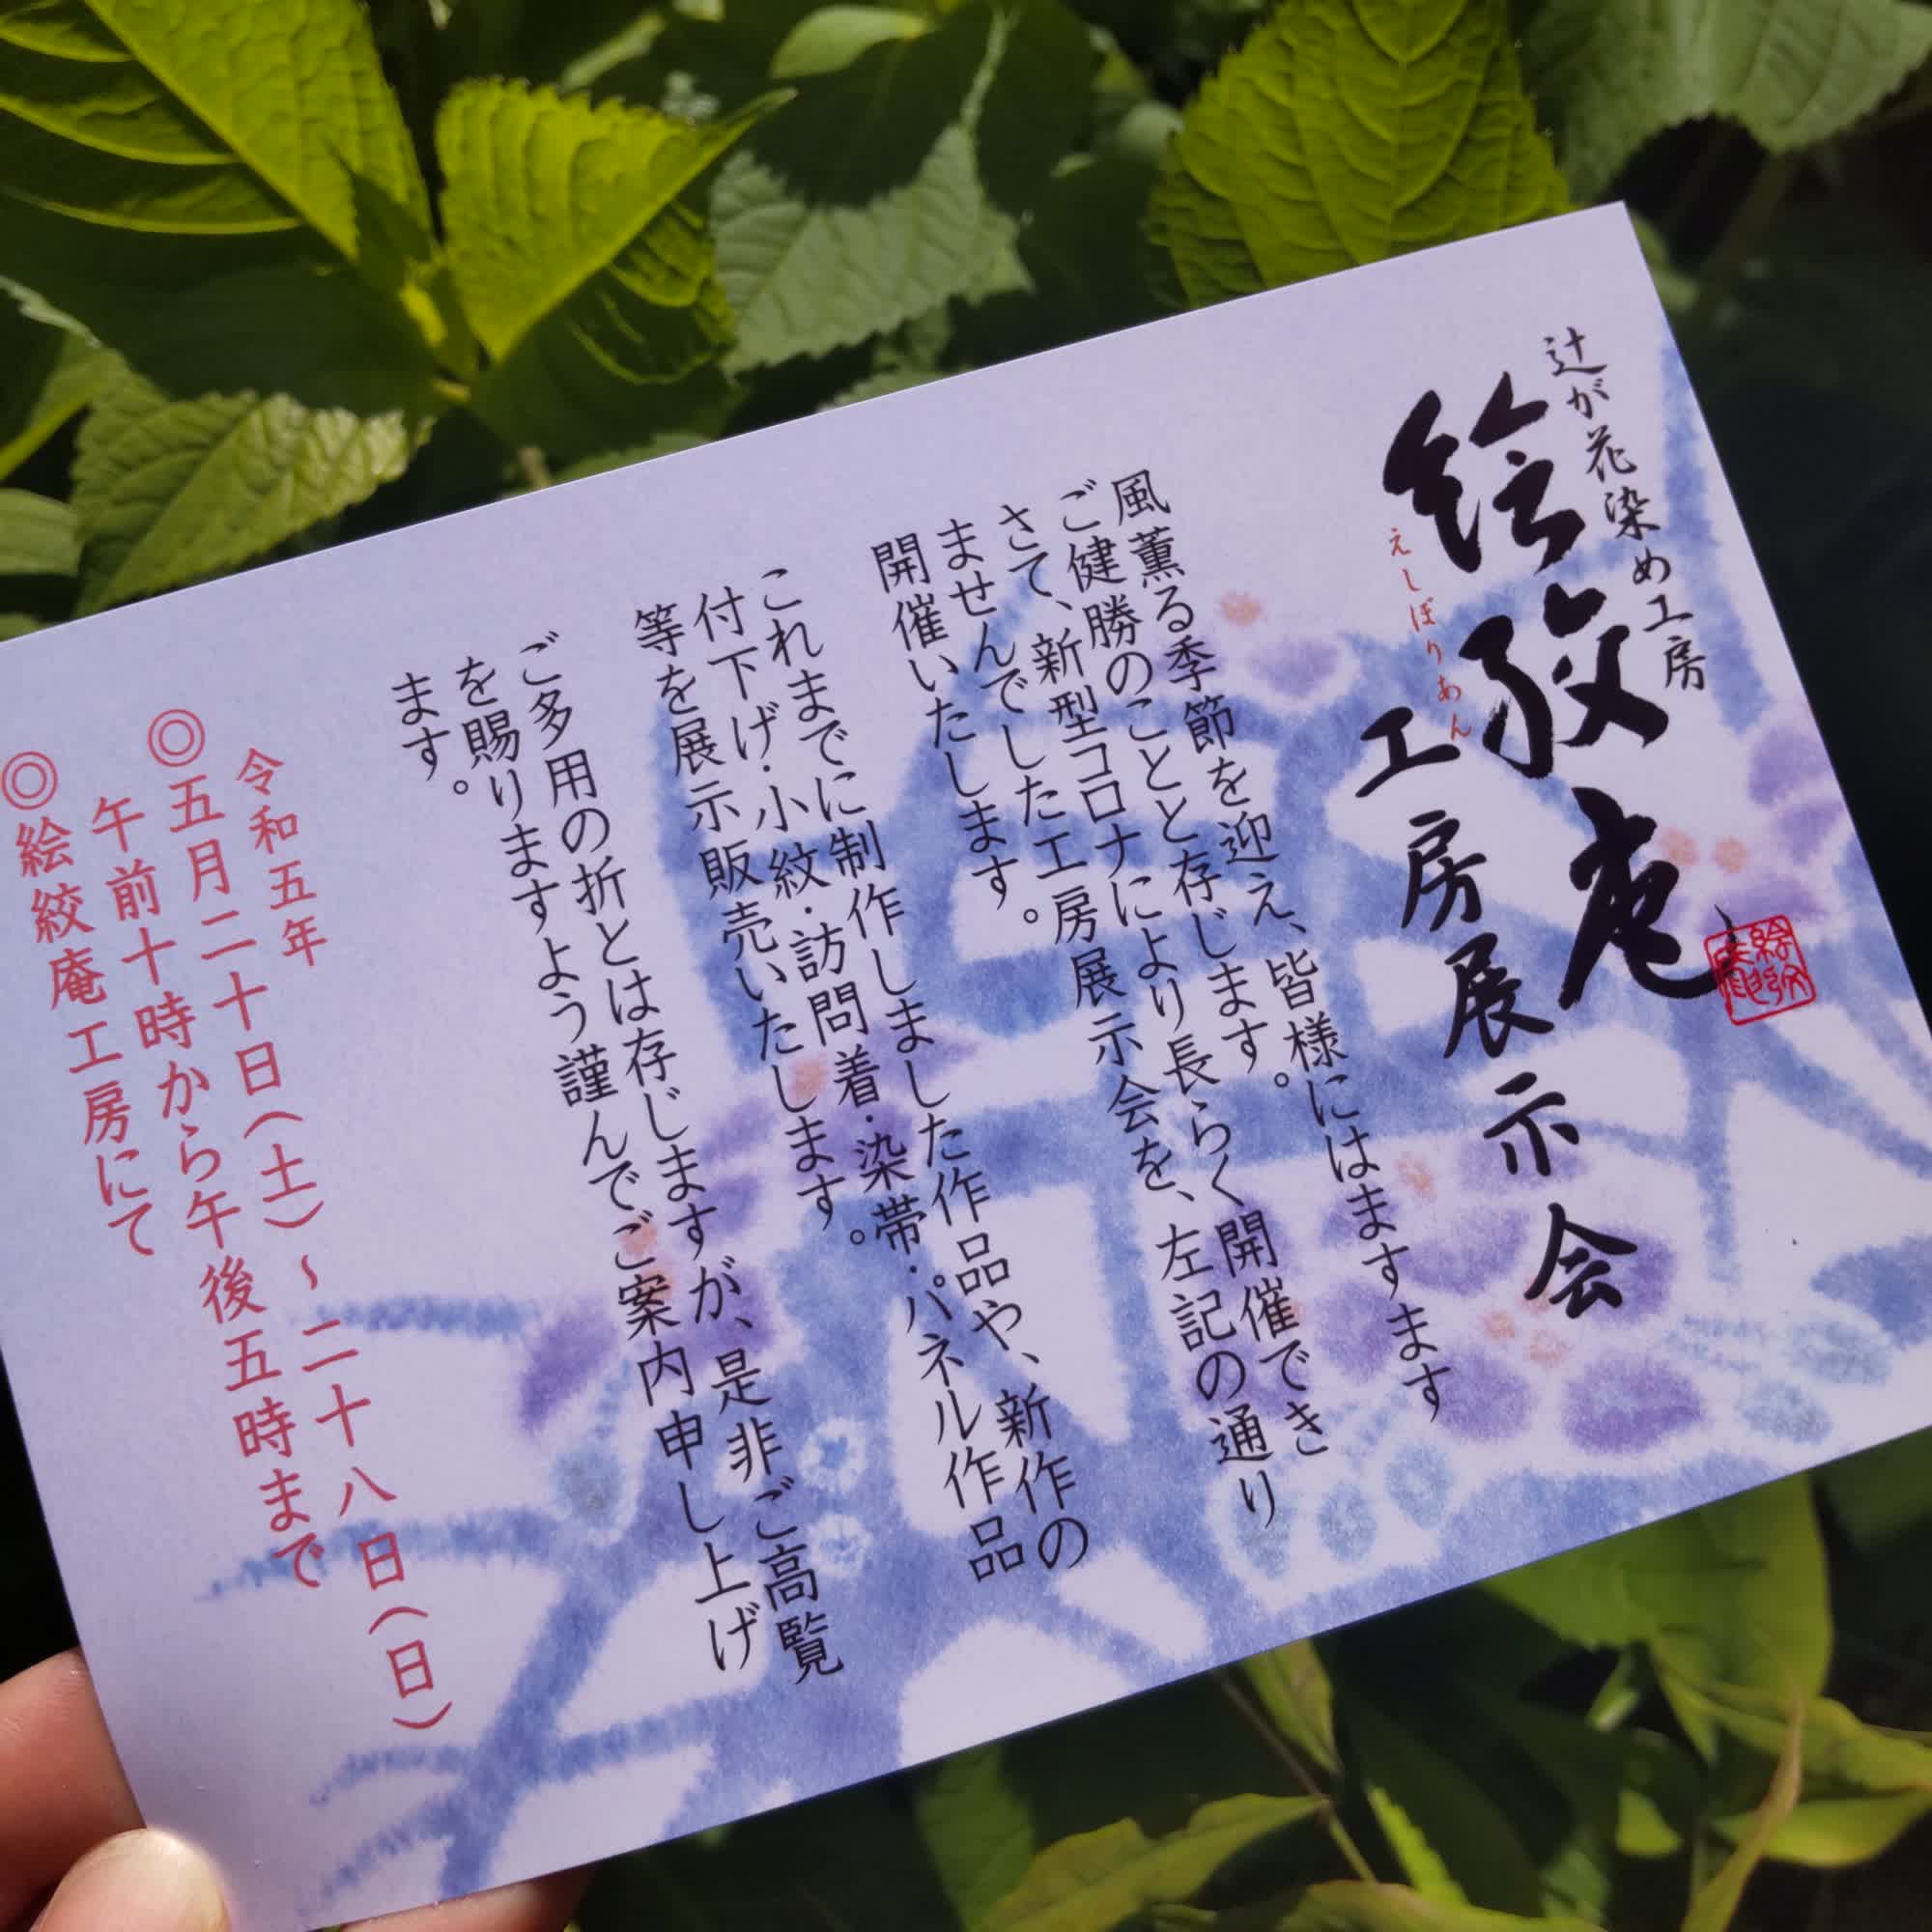 辻が花染め工房
絵絞庵
えしぼりあん
工房展示会
風薫る季節を迎え、皆様にはますます
ご健勝のことと存じます。
さて、新型コロナにより長らく開催でき
ませんでした工房展示会を、左記の通り
開催いたします。
これまでに制作しました作品や、新作の
付下げ・小紋・訪問着・染帯・パネル作品
等を展示販売いたします。
ご多用の折とは存じますが、是非ご高覧
を賜りますよう謹んでご案内申し上げ
ます。
令和五年
◎五月二十日(土)〜二十八日(日)
午前十時から午後五時まで
◎絵絞庵工房にて